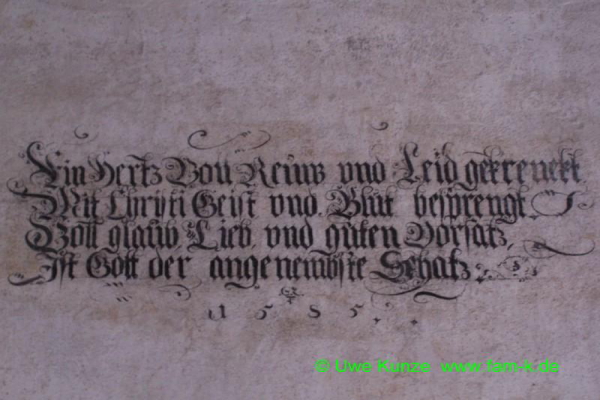 Ein Hertz Von Reuw vnd Leid gekrenckt
Mit Christi Geist vnd Blut besprengt.
Voll glaub Lieb vnd guten Vorsatz,
Ist Gott der angenembste Schatz.
1585.
© Uwe Kunze